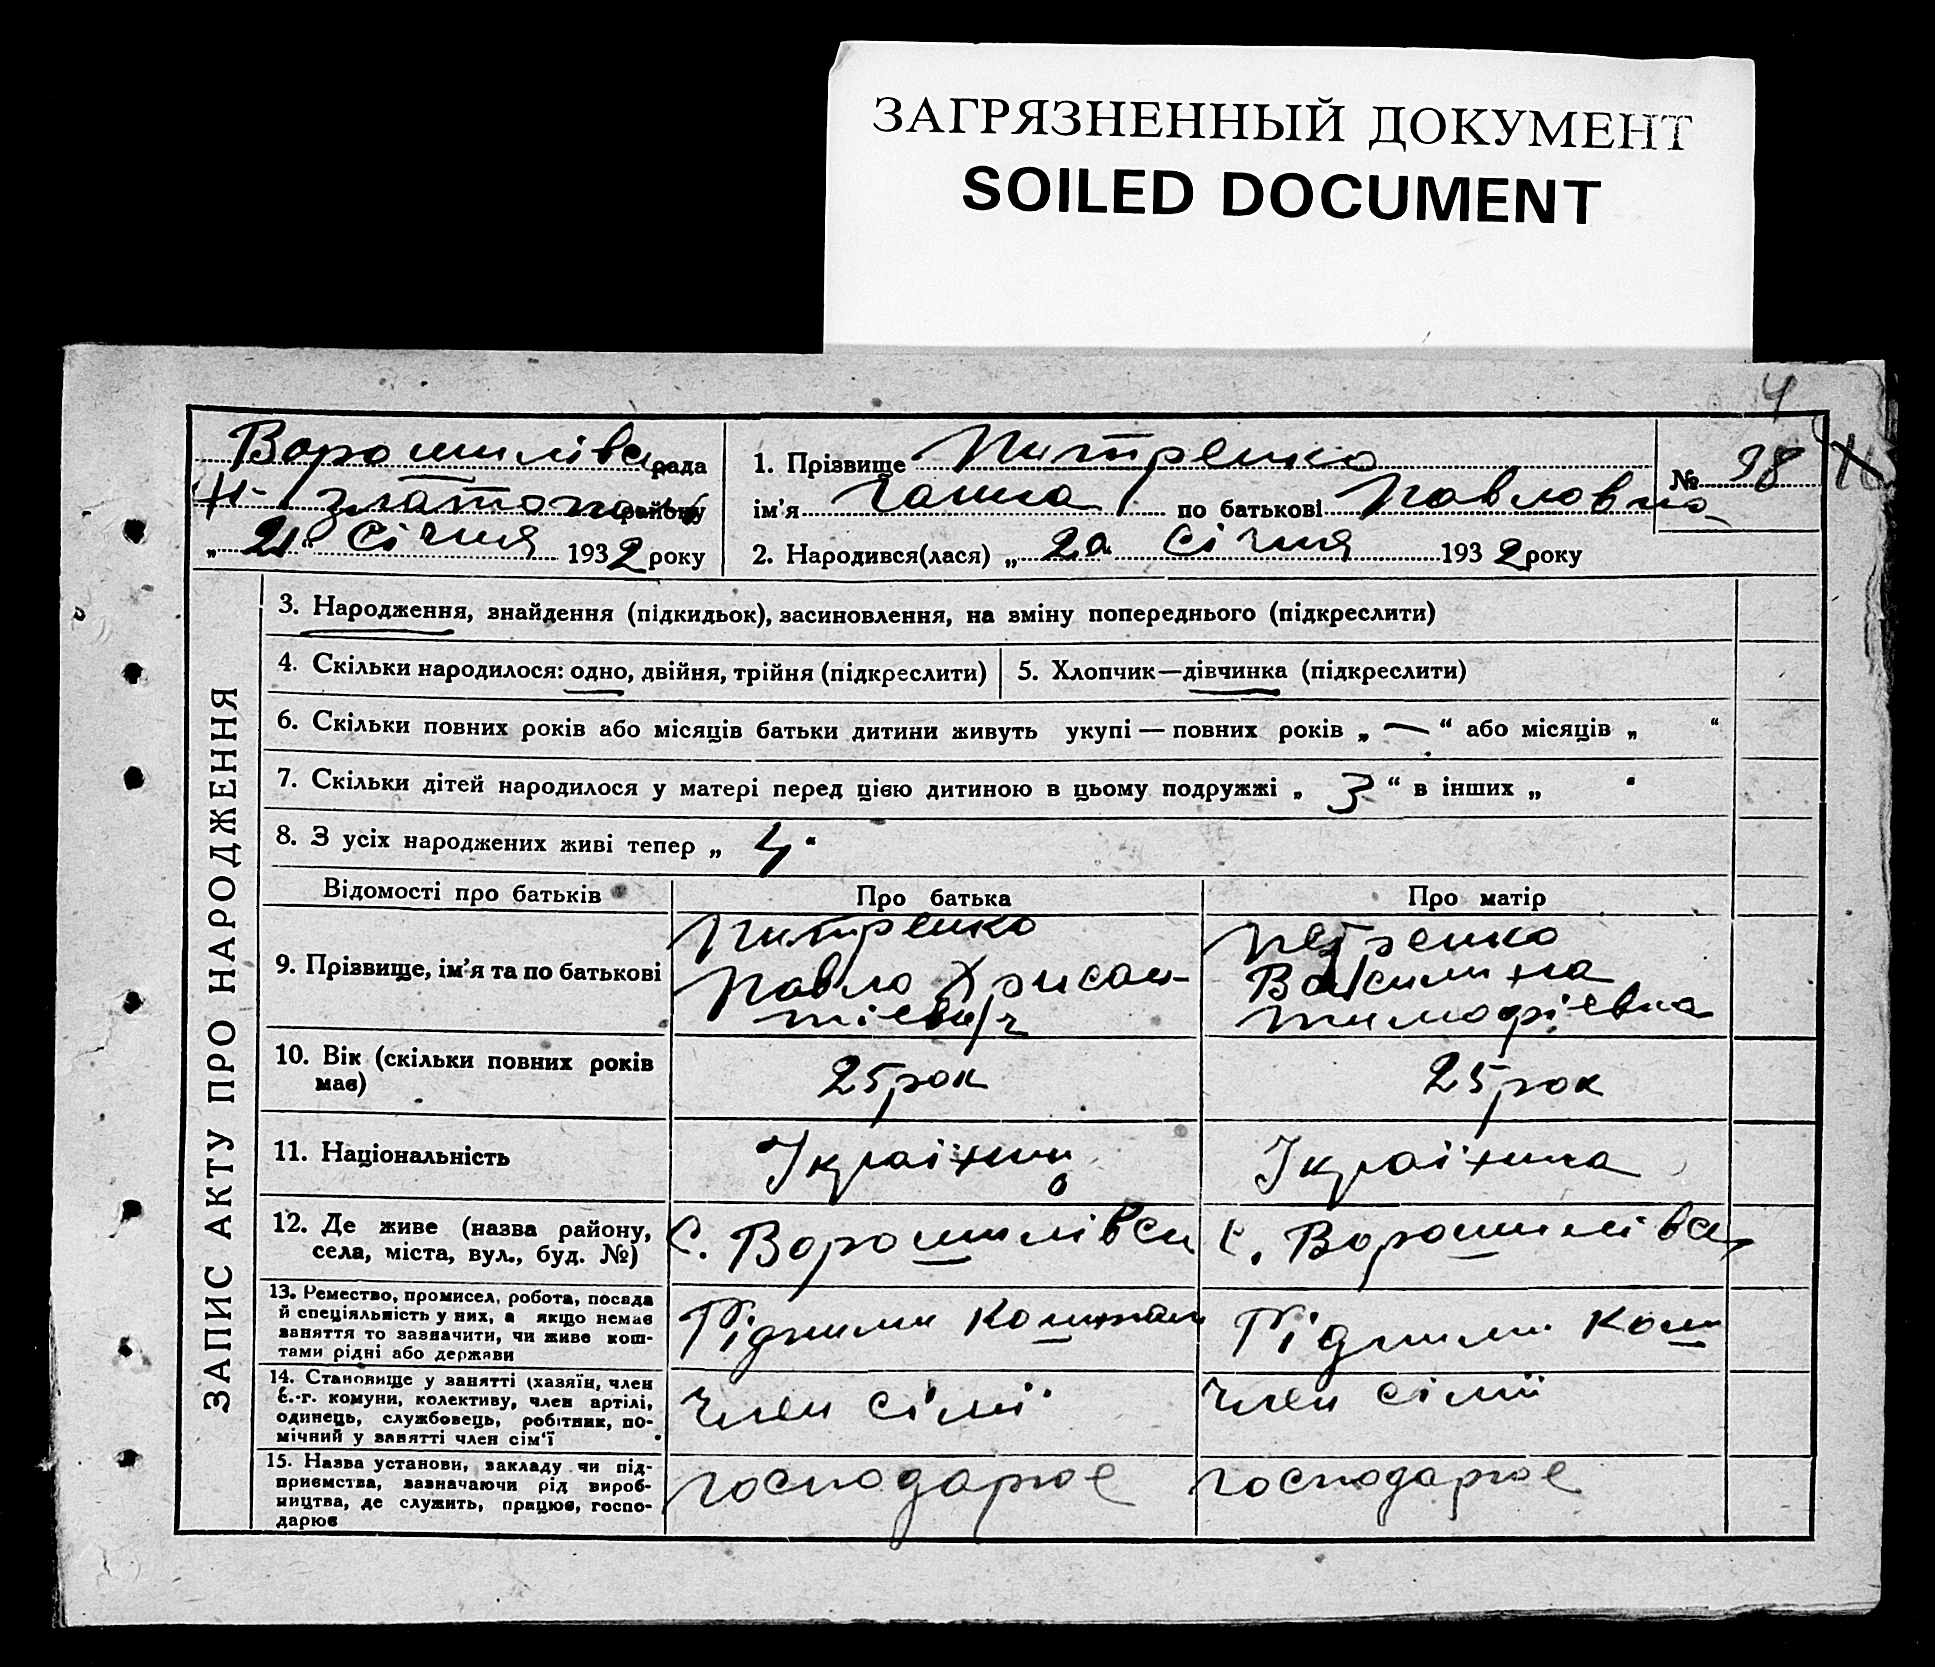 ЗАГРЯЗНЕННЫЙ ДОКУМЕНТ
SOILED DOCUMENT
4
ЗАПИС АКТУ ПРО НАРОДЖЕННЯ
Ворошилівсь рада
Н-Златопіль району
„ 21 “ Січня 1932 року
1. Прізвище Питренко
ім'я Ганна по батькові Павловна
№ 98
2. Народився(лася) „ 20 Січня 1932 року
3. Народження, знайдення (підкидьок), засиновлення, на зміну попереднього (підкреслити)
4. Скільки народилося: одно, двійня, трійня (підкреслити)
5. Хлопчик—дівчинка (підкреслити)
6. Скільки повних років або місяців батьки дитини живуть укупі — повних років „ — “ або місяців „ “
7. Скільки дітей народилося у матері перед цією дитиною в цьому подружжі „ 3 “ в інших „ “
8. З усіх народжених живі тепер „ 4 “
Відомості про батьків
Про батька
Про матір
9. Прізвище, ім'я та по батькові
Питренко
Павло Хрисан-
тієвич
Петренко
Василина
Тимофієвна
10. Вік (скільки повних років
має)
25 рок
25 рок
11. Національність
Їкраїниц
Їкраїнка
12. Де живе (назва району,
села, міста, вул., буд. №)
С. Ворошилівси
С. Ворошилівси
13. Ремество, промисел, робота, посада
й спеціяльність у них, а якщо немає
заняття то зазначити, чи живе кош-
тами рідні або держави
Рідними коштами
Рідними кош
14. Становище у занятті (хазяїн, член
с.-г. комуни, колективу, член артілі,
одинець, службовець, робітник, по-
мічний у занятті член сім'ї
Член сімії
Член сімії
15. Назва установи, закладу чи під-
приємства, зазначаючи рід вироб-
ництва, де служить, працює, госпо-
дарює
господарює
господарює